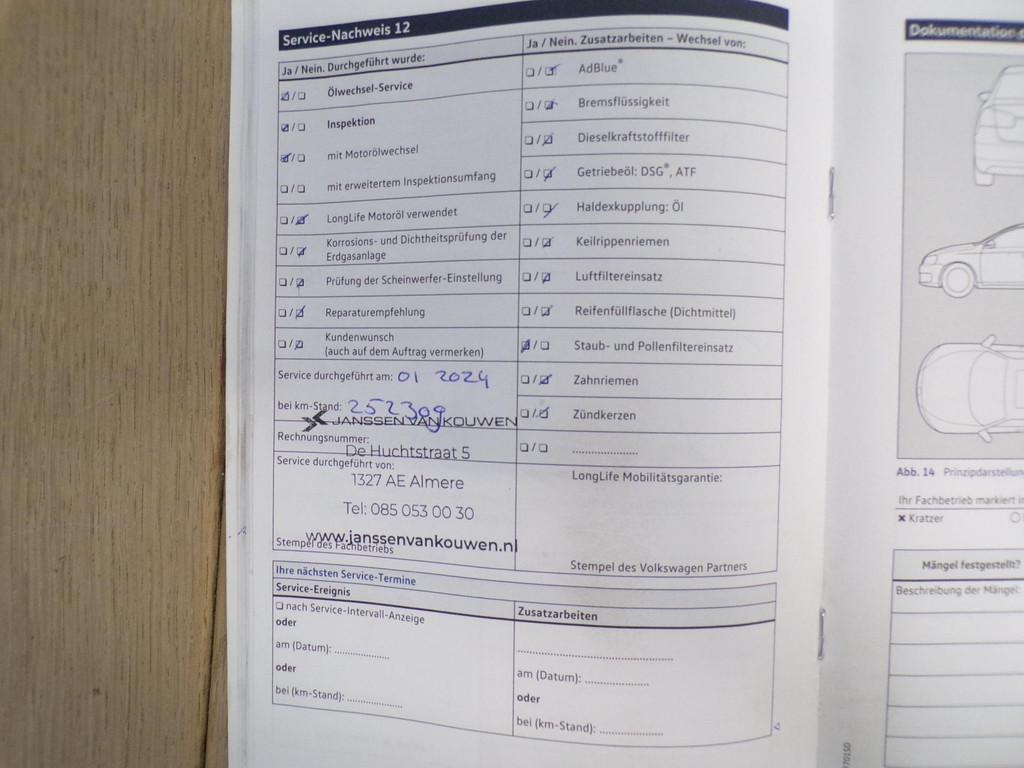 Service-Nachweis 12
Ja / Nein. Durchgeführt wurde:
Ölwechsel-Service
Inspektion
mit Motorölwechsel
mit erweitertem Inspektionsumfang
LongLife Motoröl verwendet
Korrosions- und Dichtheitsprüfung der
Erdgasanlage
Prüfung der Scheinwerfer-Einstellung
Reparaturempfehlung
Kundenwunsch
(auch auf dem Auftrag vermerken)
Service durchgeführt am: 01 2024
bei km-Stand: 252309
JANSSEN VAN KOUWEN
Rechnungsnummer:
De Huchtstraat 5
Service durchgeführt von:
1327 AE Almere
Tel: 085 053 00 30
www.janssenvankouwen.nl
Stempel des Fachbetriebs
Ja / Nein. Zusatzarbeiten – Wechsel von:
AdBlue®
Bremsflüssigkeit
Dieselkraftstofffilter
Getriebeöl: DSG®, ATF
Haldexkupplung: Öl
Keilrippenriemen
Luftfiltereinsatz
Reifenfüllflasche (Dichtmittel)
Staub- und Pollenfiltereinsatz
Zahnriemen
Zündkerzen
LongLife Mobilitätsgarantie:
Stempel des Volkswagen Partners
Ihre nächsten Service-Termine
Service-Ereignis
nach Service-Intervall-Anzeige
oder
am (Datum): ....................
oder
bei (km-Stand): ....................
Zusatzarbeiten
am (Datum): ....................
oder
bei (km-Stand): ....................
Dokumentation
Abb. 14 Prinzipdarstellun
Ihr Fachbetrieb markiert
× Kratzer
Mängel festgestellt?
Beschreibung der Mängel: